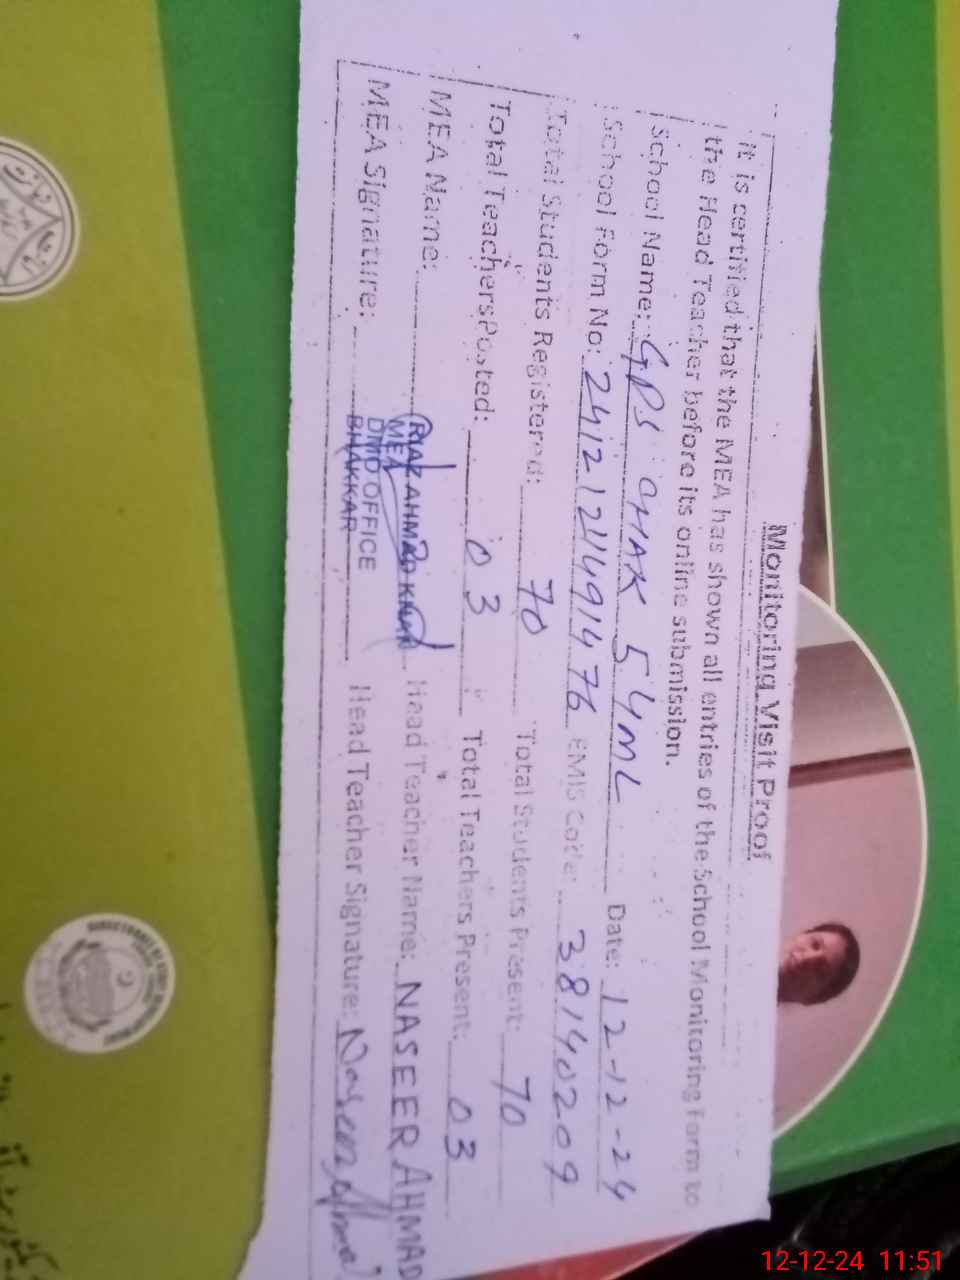 Monitoring Visit Proof
it is certified that the MEA has shown all entries of the School Monitoring Form to
the Head Teacher before its online submission.
School Name: GPS CHAK 54ML Date: 12-12-24
School Form No: 2412124491476 EMIS Code: 38140209
Total Students Registered: 70 Total Students Present: 70
Total Teachers Posted: 03 Total Teachers Present: 03
MEA Name: RIAZ AHMAD KHAN Head Teacher Name: NASEER AHMAD
MEA
DMO OFFICE
BHAKKAR
MEA Signature: Head Teacher Signature: Naseer Ahmad
12-12-24 11:51